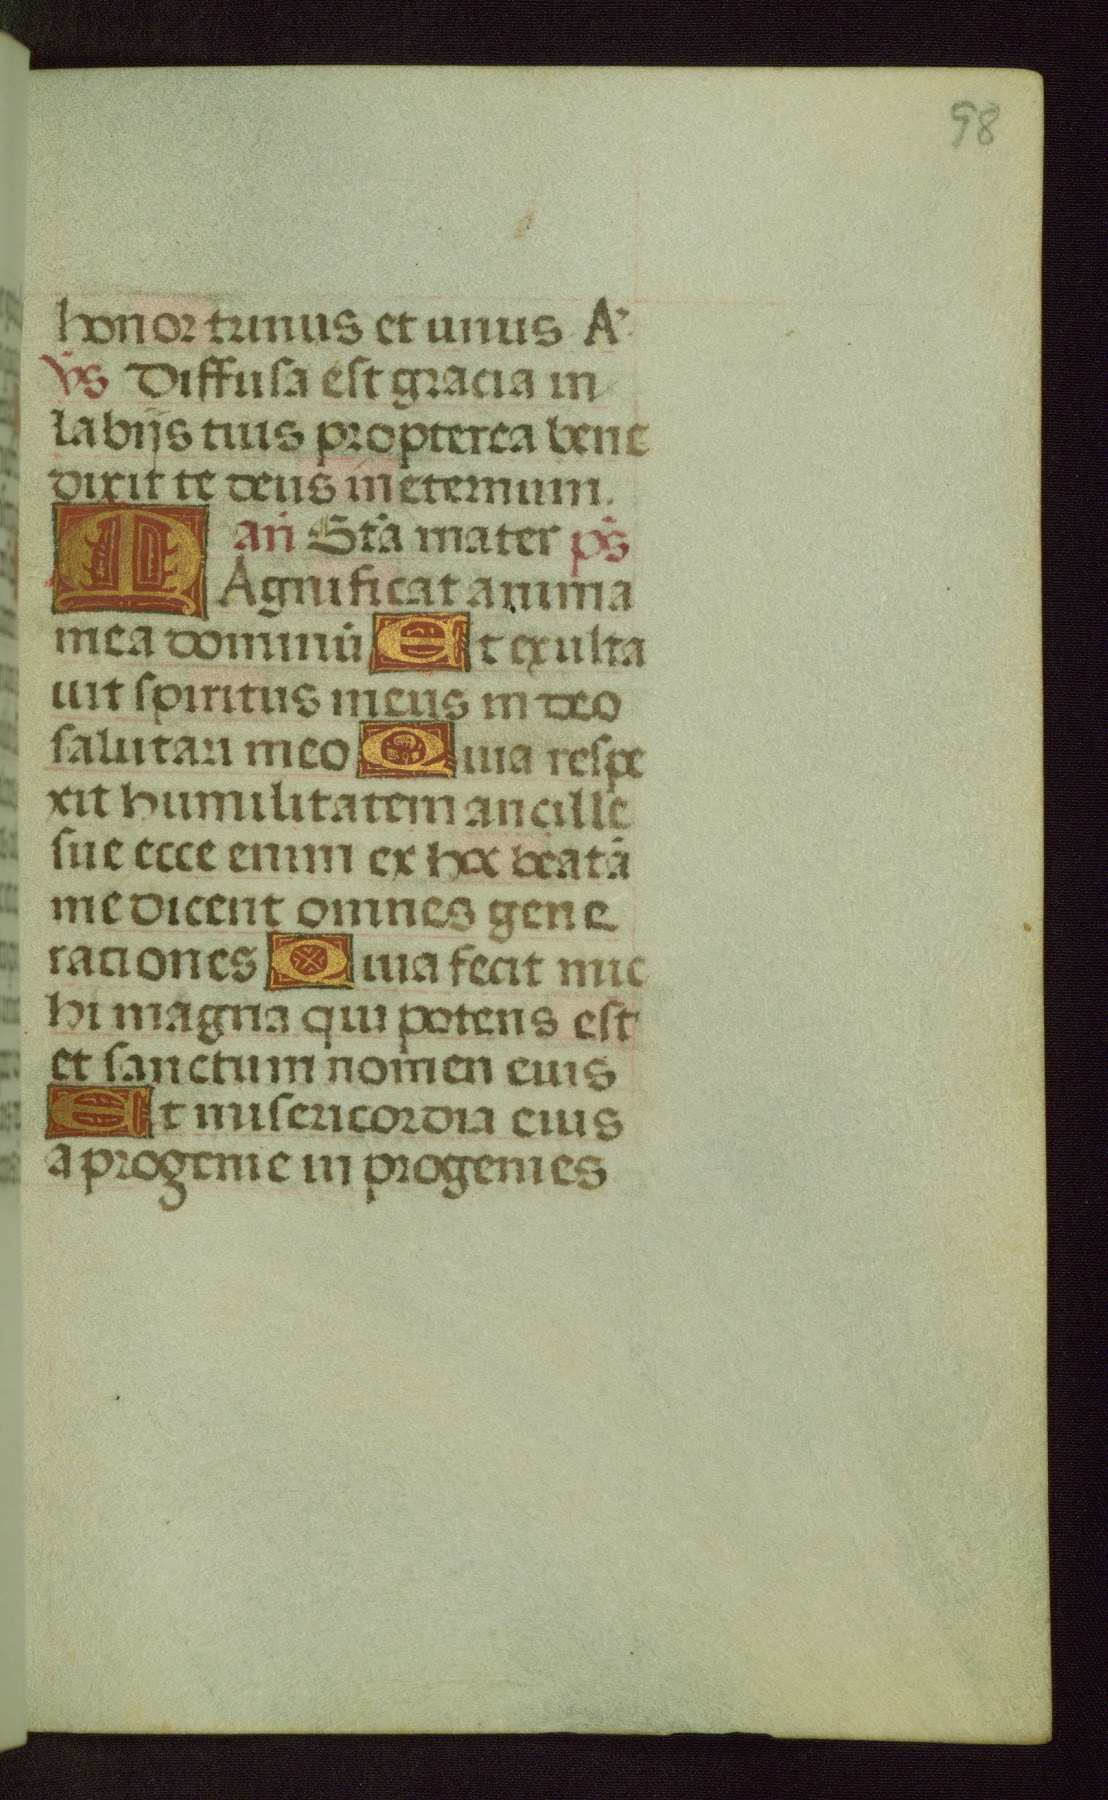 98
honor trinus et unus A.
v̄s Diffusa est gracia in
labijs tuis propterea bene
dixit te deus in eternum.
an̄ Sc̄ta mater ps̄
MAgnificat anima
mea dominū Et exulta
uit spiritus meus in deo
salutari meo Quia respe
xit humilitatem ancille
sue ecce enim ex hoc beatā
me dicent omnes gene
raciones Quia fecit mic
hi magna qui potens est
et sanctum nomen eius
Et misericordia eius
a progenie in progenies